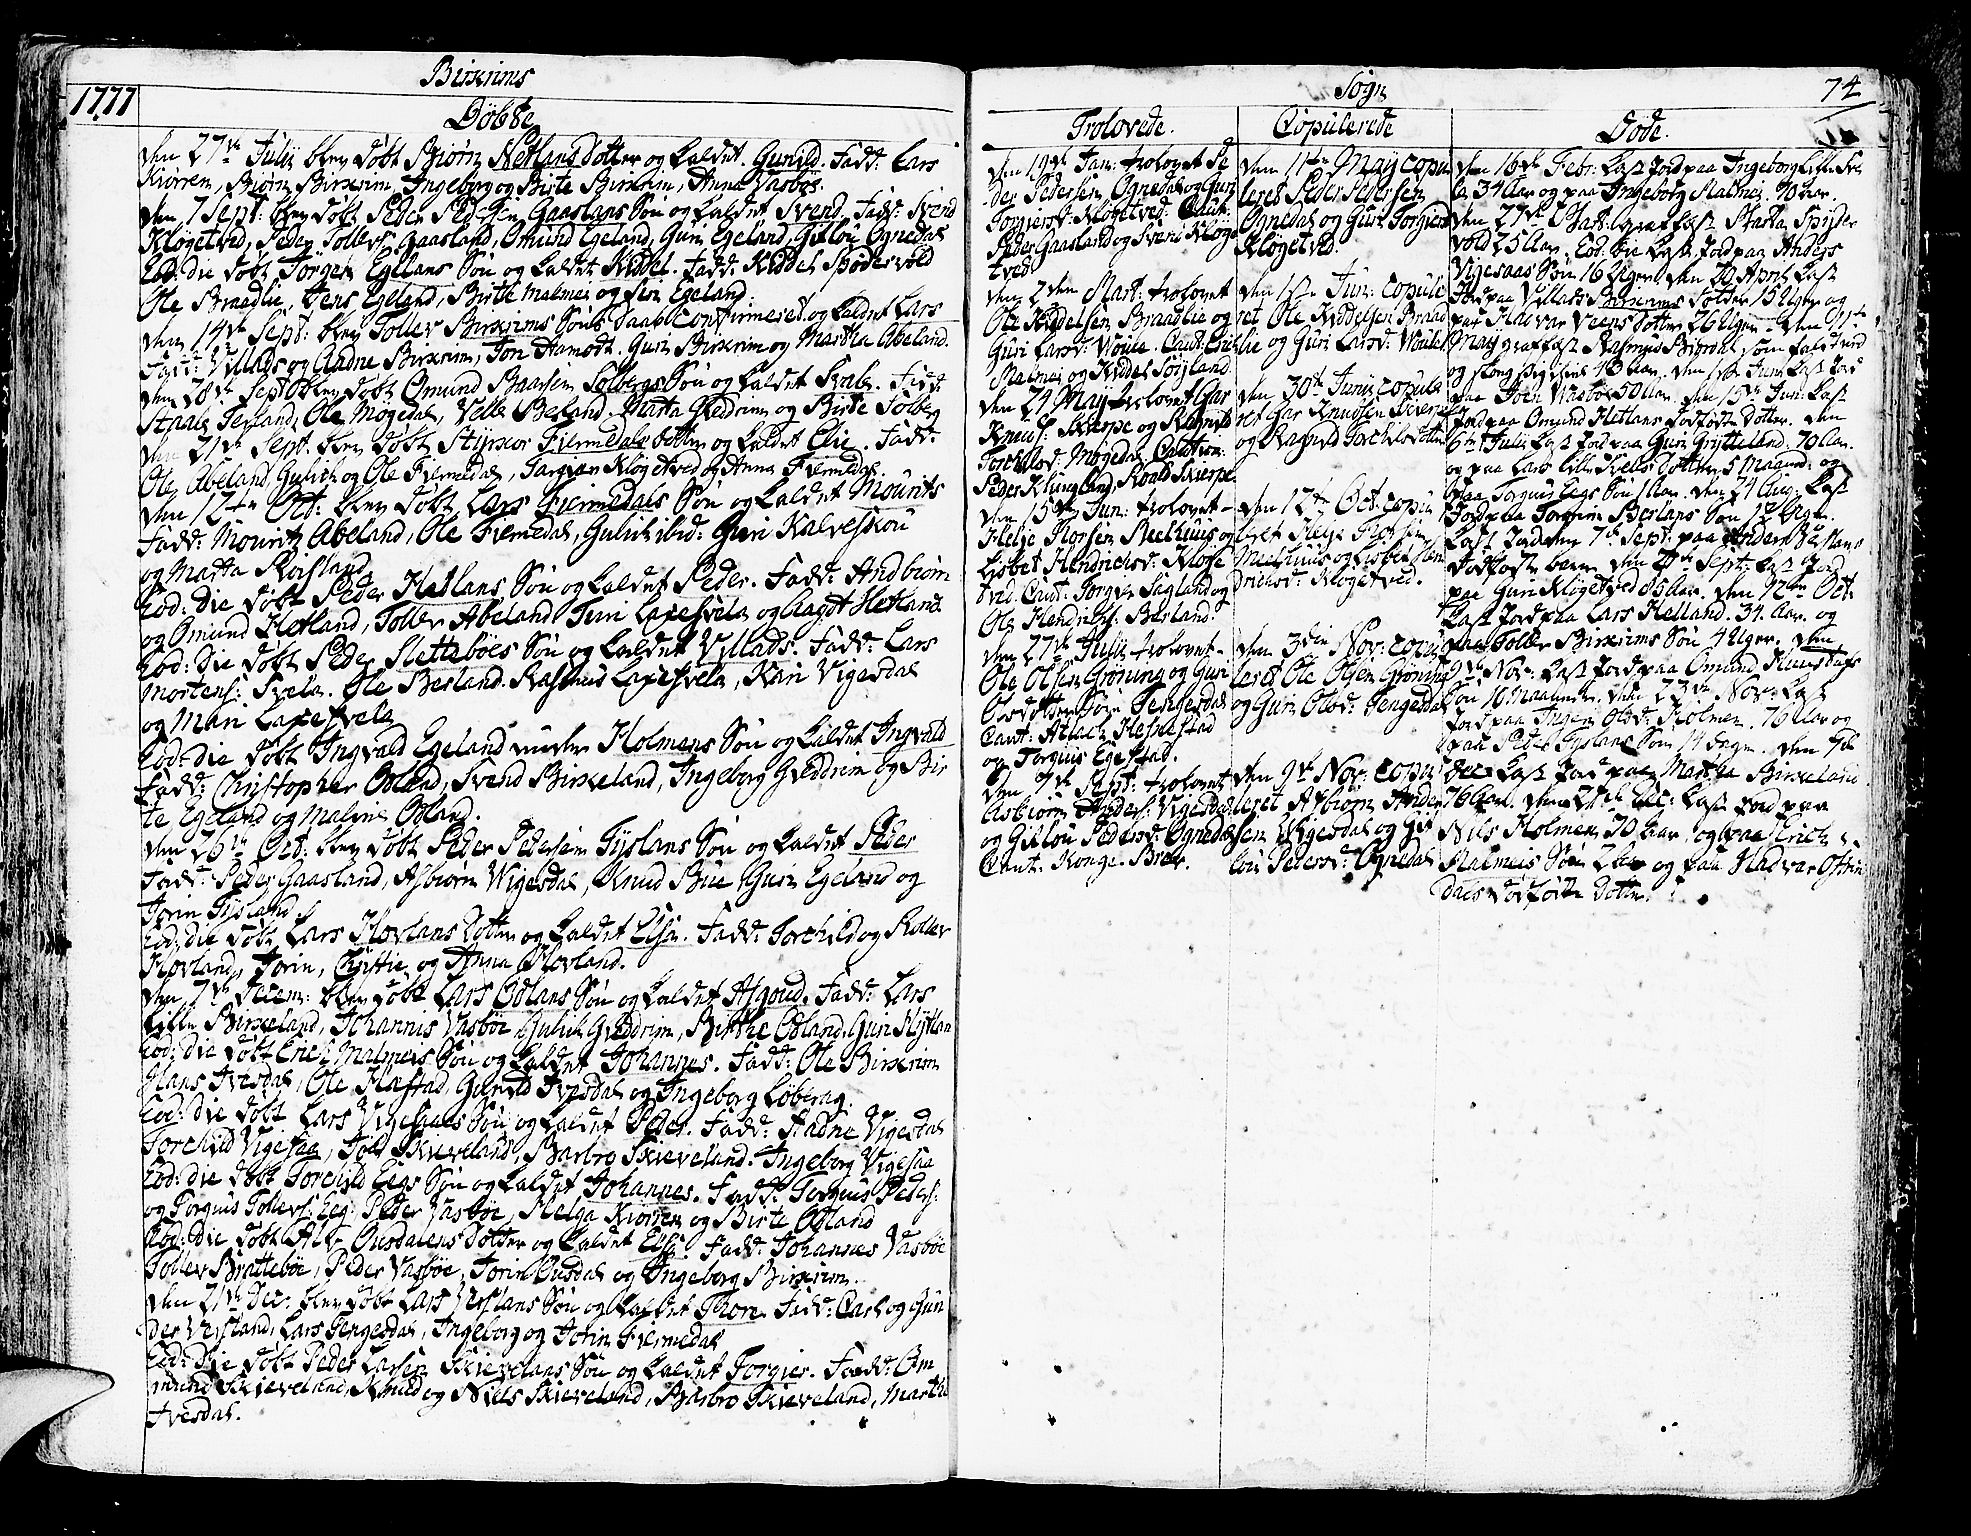 Birkrims
1777
Döbte
den 27de Julii blev döbt Biørn Netlans dotter og kaldet Gunild. Fadd: Lars
Kiörrem, Biørn Birkrim, Ingeborg og Birte Birkrim, Anna Vasböe.
den 7 Sept: blev döbt Peder Pedersen Gaaslans Sön og kaldet Svend. Fadd: Svend
Klögetved, Peder Tollevs: Gaasland, Omund Egeland, Guri Egeland, Giflou Ognedal
Eod: die döbt Törger Egelans Sön og kaldet Kiddel. Fadd: Kiddel Spödervold
Ole Braadlie, Jens Egeland, Birte Malmei og Siri Egeland.
den 14de Sept: blev Tollev Birkrims Söns daab confirmeret og kaldet Lars
Fadd: Villads og Aadne Birkrim, Jon Hamodt. Guri Birkrim og Martha Abeland.
den 20de Sept blev döbt Omund Baarsen Solbergs Sön og kaldet Fadd:
Staale Terland, Ole Mogedal, Beland. Marta Gieddrim og Birte Solberg
den 21de Sept: blev döbt Fiermedals dotter og kaldet Elie. Fadd:
Ole Abeland, Gulich og Ole Fiermedal, Klögetved og Anna Fiermedal.
den 12te Oct: blev döbt Lars Fiermedals Sön og kaldet Mourits
Fadd: Mourits Abeland, Ole Fiermedal, Gulich ibid: Guri Kalveskou
og Marta Rorsland
Eod: die döbt Peder Hetlans Sön og kaldet Peder. Fadd: Andbiörn
og Omund Hetland, Tollev Abeland, Turi Laxesvela og Aagot Hetland.
Eod: die döbt Peder Sletteböes Sön og kaldet Villads. Fadd: Lars
Mortens: Svela. Ole Berland. Rasmus Laxesvela, Kari Vigesdal
og Mari Laxesvela
Eod: die döbt Ingvald Egeland Holmens Sön og kaldet Ingvald
Fadd: Christopher Odland, Svend Birkeland, Ingeborg Gieddrim og Bir
te Egeland og Malene Odland.
den 26de Oct: blev döbt Peder Pedersen Tyslans Sön og kaldet Peder
Fadd: Peder Gaasland, Asbiörn Vigesdal, Knud Bue, Guri Egeland og
Torin Tysland
Eod: die döbt Lars Hovlans dotter og kaldet Elsa. Fadd: Torchild og Tollev
Hovland, Torin, Christie og Anna Hovland.
den 7de Decem: blev döbt Lars Odlans Sön og kaldet Asgoud. Fadd: Lars
Lille Birkeland, Johannis Vasböe, Gulich Gieddrim, Birthe Odland, Guri
Eod: die döbt Erich Malmeis Sön og kaldet Johannes. Fadd: Ole Birkrim
Hans Ivesdal, Ole Hæstad, Gunild Ivesdal og Ingeborg Löberag.
Eod: die döbt Lars Vigesaaes Sön og kaldet Peder. Fadd: Aadne Vigesdal
Torchild Vigesaa, Tol Skieveland, Barbro Skieveland. Ingeborg Vigesaa
Eod: die döbt Torchild Eegs Sön og kaldet Johannes. Fadd: Torgius Peders:
og Torgius Tollevs: Eeg. Peder Vasböe, Helga Kiörrem og Birte Odland
Eod: die döbt Ousdalens dotter og kaldet Elsa. Fadd: Johannes Vasböe
Tollev Bratteböe, Peder Vasböe, Torin Ousdal og Ingeborg Birkrim.
den 21de Dec: blev döbt Lars Verslans Sön og kaldet Thore. Fadd: Carl og Gun
der Versland, Lars Tengesdal, Ingeborg og Torin Fiermedal
Eod: die döbt Peder Larsen Skievelans Sön og kaldet Torgier. Fadd: Om
mund Skieveland, Knud og Niels Skieveland, Barbro Skieveland, Marthe
Ivesdal.
Sogn
74
Trolovede.
den 19de Jan: trolovet Pe
der Pedersen Ognedal og Guri
Torgiersd: Klögetved: Caut:
Peder Gaasland og Svend Klöge
tved.
den 2den Mart: trolovet
Ole Kiddelsen Braadlie og
Guri Larsd: Caut: Erich
Malmei og Kiddel Söyland
den 24 May trolovet Gar
Knuds: Skierpe og Ragnild
Torchilsd: Mogedal Caution:
Peder Klungland, Roald Skierpe
den 15de Jun: trolovet
Helje Torsen Meelhuus og
Lisbet Hendrichsd: Kloge
tved. Caut: Torger Sagland og
Ole Hendrichs: Berland.
den 27de Julii trolovet
Ole Olsen Gröning og Guri
Olsdotter Söre Tengesdal
Caut: Atlach Hesnestad
og Torgius Egestad.
den 7de Sept: trolovet
Asbiörn Anders: Vigesdal
og Giflou Pedersd: Ognedal
Caut: Konge-Brev.
Copulerede
den 11te May copu
leret Peder Pedersen
Ognedal og Guri Torgiersd:
Klögetved.
den 1ste Jun: copule
ret Ole Kiddelsen Braad
lie og Guri Larsd:
den 30de Junii copule
ret Gar Knudsen Skierpe
og Ragnild Torchilsdotter
den 12te Oct: copu
leret Helje Torsen
Meelhuus og Lisbet Hen
drichsd: Klogetved.
den 3die Nov: copu
leret Ole Olsen Gröning
og Guri Olsd: Tengesdal
den 9de Nov: copu
leret Asbiörn Ander
sen Vigesdal og Gif
lou Pedersd: Ognedal
Döde.
den 16de Feb: kast Jord paa Ingeborg Lille Sve
la 34 Aar og paa Ingeborg Malmei 70 Aar.
den 27de Mart: graffæst Marta Spöder
vold 25 Aar. Eod: die kast Jord paa Anders
Vigesaas Sön 16 Uger. den 20 April kast
Jord paa Villads Birkrims dotter 15 Uger og
paa Halvar Veens dotter 26 Uger. den 11te
May graffæst Rasmus Bigrdal som faldt ned
og slog sig ihiel 43 Aar. den 1ste Jun: kast Jord
paa Joen Vasböe 50 Aar. den 15de Jun: kast
Jord paa Omund Hetlans dödfödte dotter. den
6te Julii kast Jord paa Guri Grytteland. 70 Aar.
og paa Lars Lille Svelas dotter 5 Maaneder og
paa Torgius Eegs Sön 1 Aar. den 24 Aug: kast
Jord paa Torgrim Berlans Sön 12 Uger.
kast Jord den 7de Sept: paa Anders
dödfödte barn. den 21de Sept: kast Jord
paa Guri Klögetved 85 Aar. den 12te Oct:
kast Jord paa Lars Helland. 34 Aar. og
paa Tollev Birkrims Sön 4 Uger. den
9de Nov: kast Jord paa Omund
Sön 16 Maaneder. den 23de Nov: kast
Jord paa Inger Olsd: Holmen. 76 Aar og
paa Peder Tyslans Sön 14 dage. den 7de
Dec: kast Jord paa Martha Birkeland
76 Aar. den 21de Dec: kast Jord paa
Nils Holmen 70 Aar, og paa Erich
Malmeis Sön og paa Halvar Ostrem
dals dödfödte dotter.